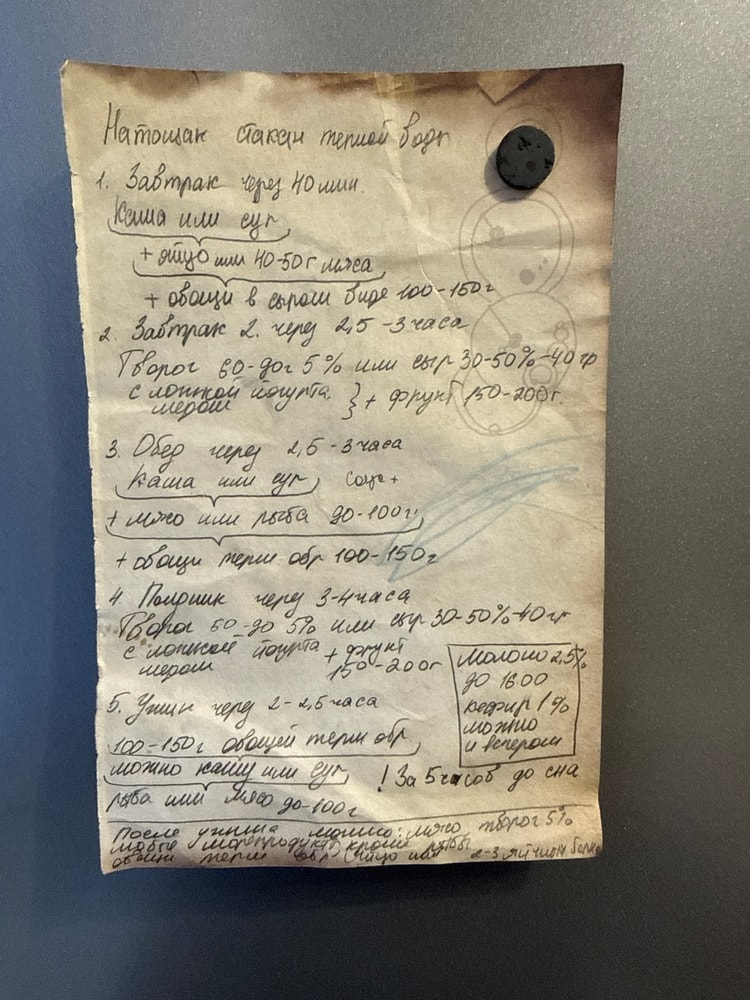 Натощак стакан теплой воды
1. Завтрак через 40 мин.
Каша или суп
+ яйцо или 40-50г мяса
+ овощи в сыром виде 100-150г
2. Завтрак 2. через 2,5-3 часа
Творог 60-90г 5% или сыр 30-50%-40гр
с ложкой йогурта } + фрукт 150-200г.
медом
3. Обед через 2,5-3 часа
Каша или суп соус +
+ мясо или рыба 90-100г
+ овощи терм обр 100-150г
4. Полдник через 3-4 часа
Творог 60-90 5% или сыр 30-50% 40гр
с ложкой йогурта + фрукт
медом 150-200г
Молоко 2,5%
до 16 00
кефир 1%
можно
и вечером
5. Ужин через 2-2,5 часа
100-150г овощей терм обр
можно кашу или суп ! За 5 часов до сна
рыба или мясо 90-100г
После ужина можно: мясо, творог 5%
любые морепродукты кроме рыбы
овощи терм обр яйцо или 2-3 яичн. белка